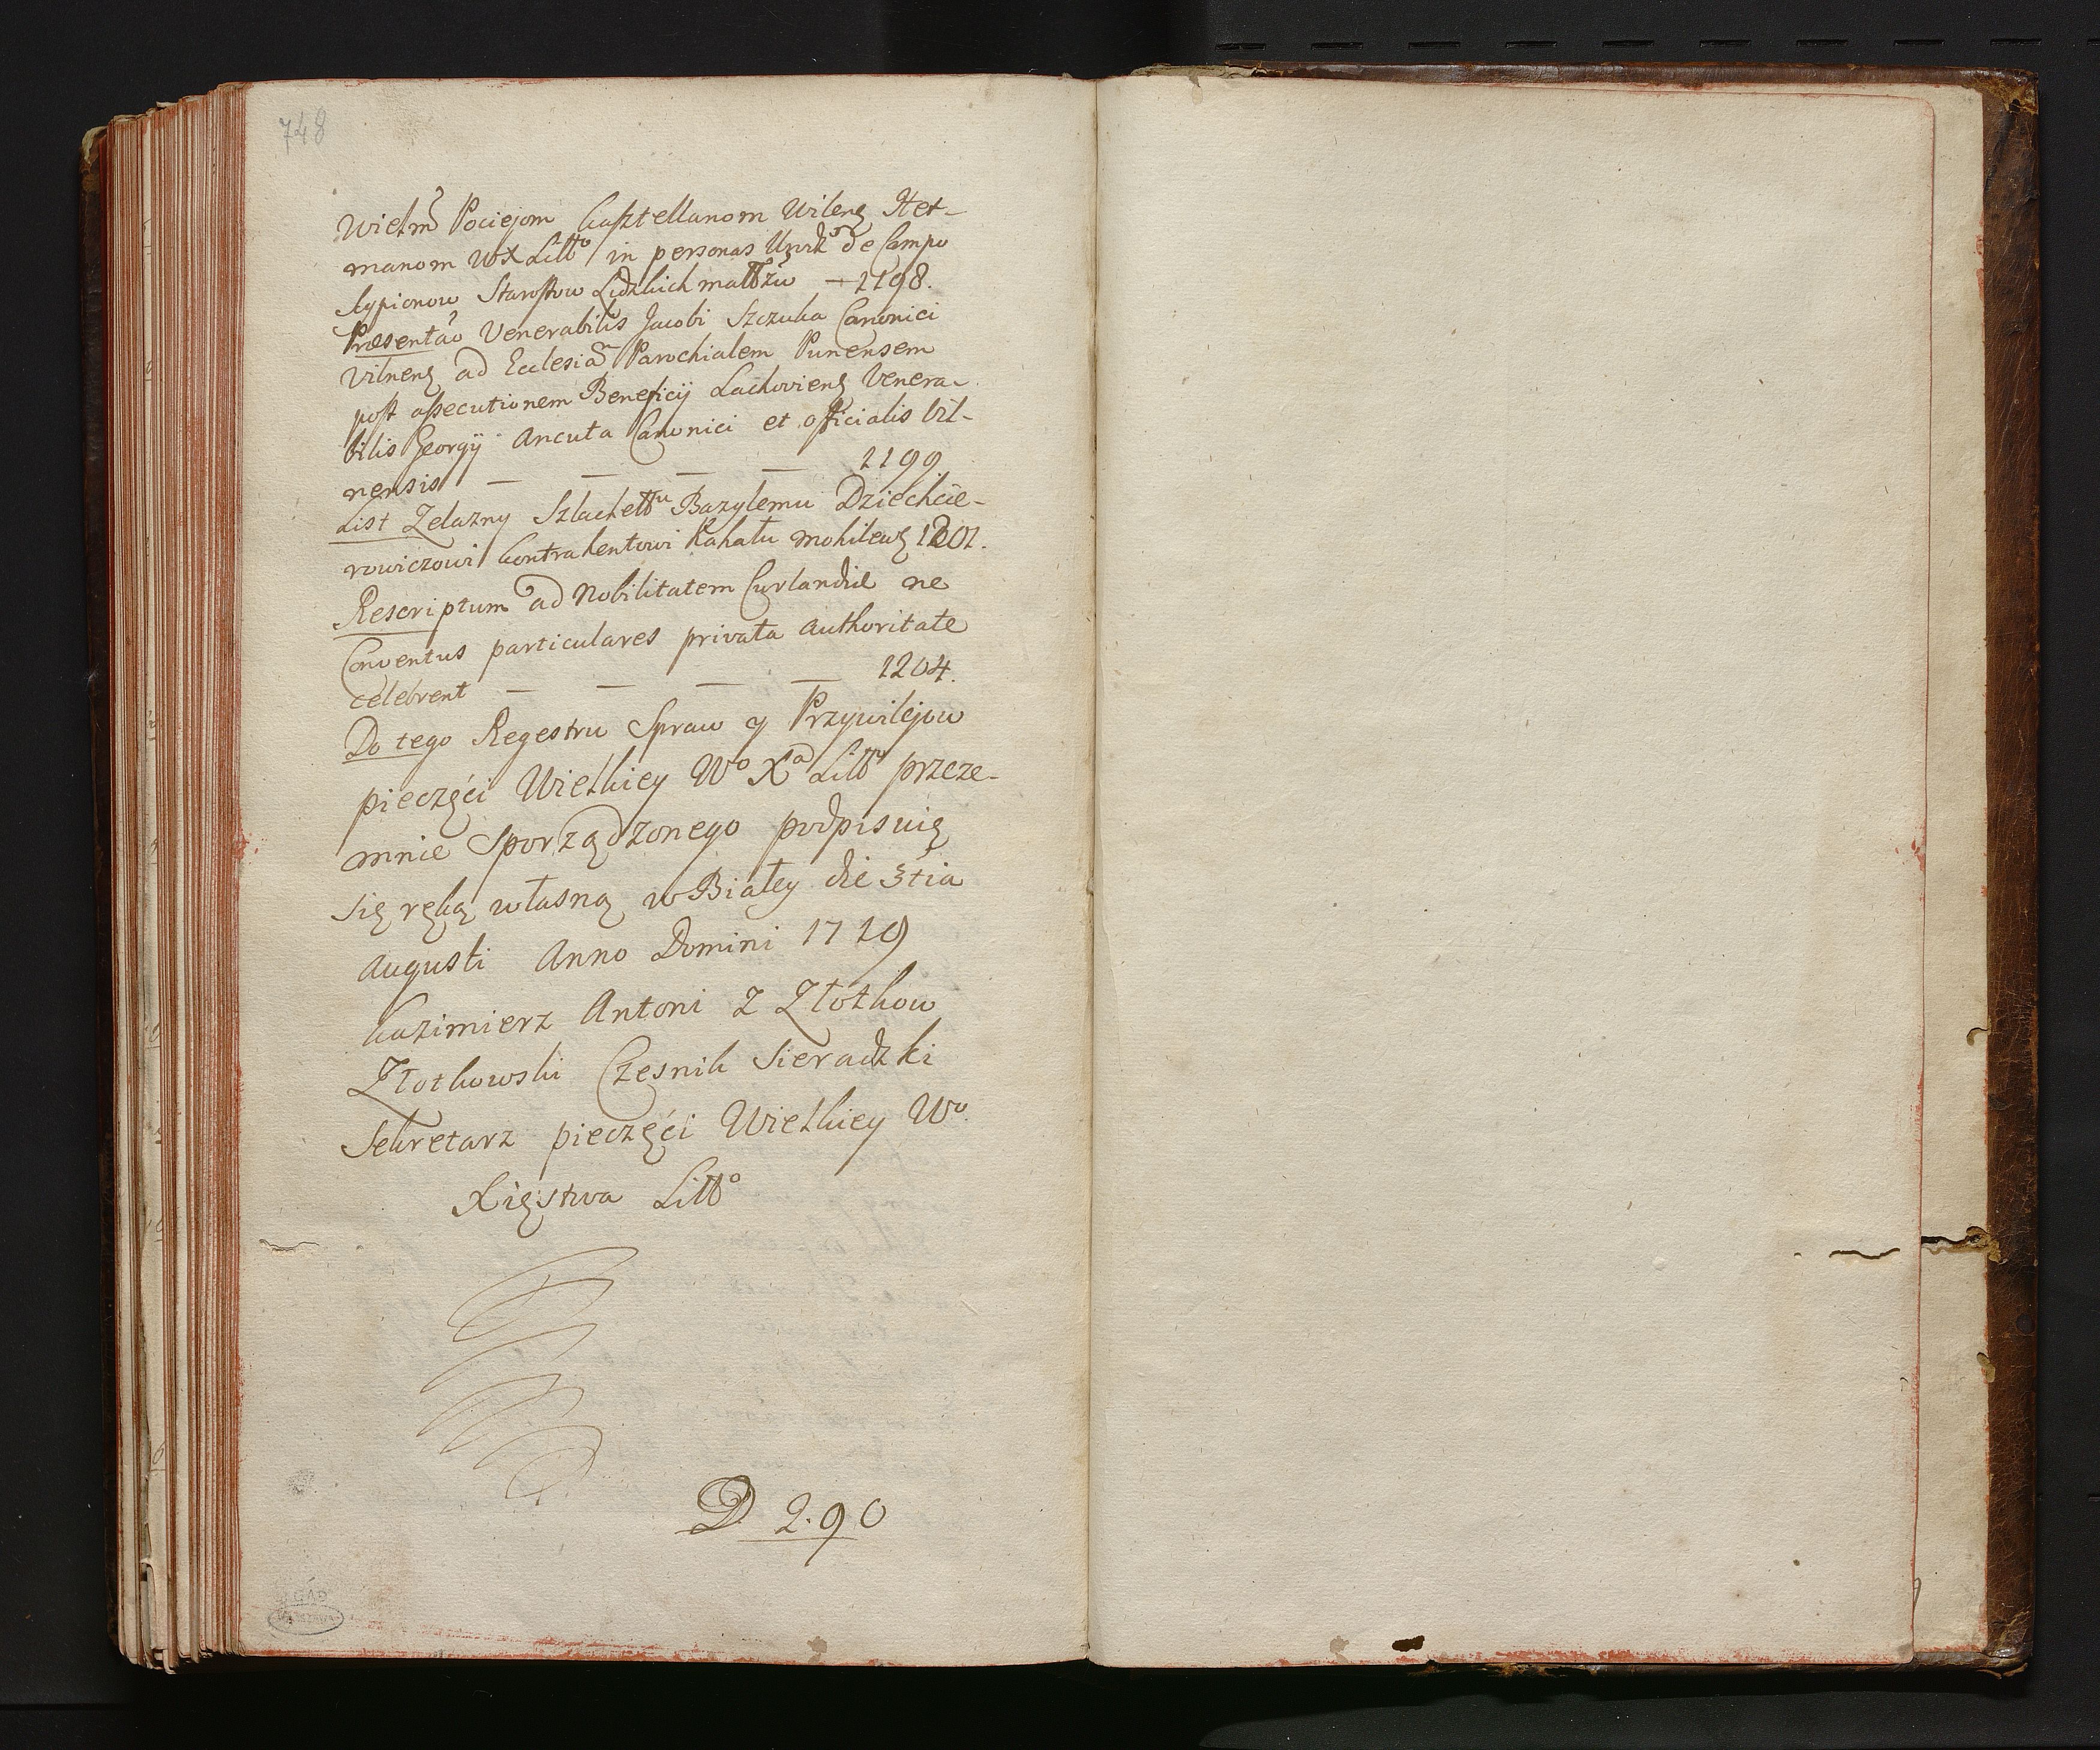 748
Wielm̃ Pociejom Kasztellanom Wileng Het-
manom WX Litto in personas Urodz de Campo
Scypionow Starostow Lidzkich małzu — 1198.
Præsentão Venerabilis Jacobi Szczuka Canonici
Vilneng ad Ecclesiãm Parochialem Punensem
post assecutionem Beneficij Lachovieng Venera-
bilis Georgij Ancuta Canonici et officialis Vil-
nensis — — — — 1199
List Zelazny Szlachettu Bazylemu Dziechcie-
rowiczowi kontrahentowi Kahału mohilewg 1201.
Rescriptum ad Nobilitatem Curlandiæ ne
Conventus particulares privata authoritate
celebrent — — — — 1204.
Do tego Regestru Spraw y Przywilejow
pieczęći Wielkiey Wo Xa Litto przeze-
mnie Sporządzonego podpisuię
się ręką własną w Białey die 3tia
Augusti Anno Domini 1719
Kazimierz Antoni Z Złotkow
Złotkowski Czesnik Sieradzki
Sekretarz pieczęći Wielkiey Wo
Xięstwa Litto
D 2.90